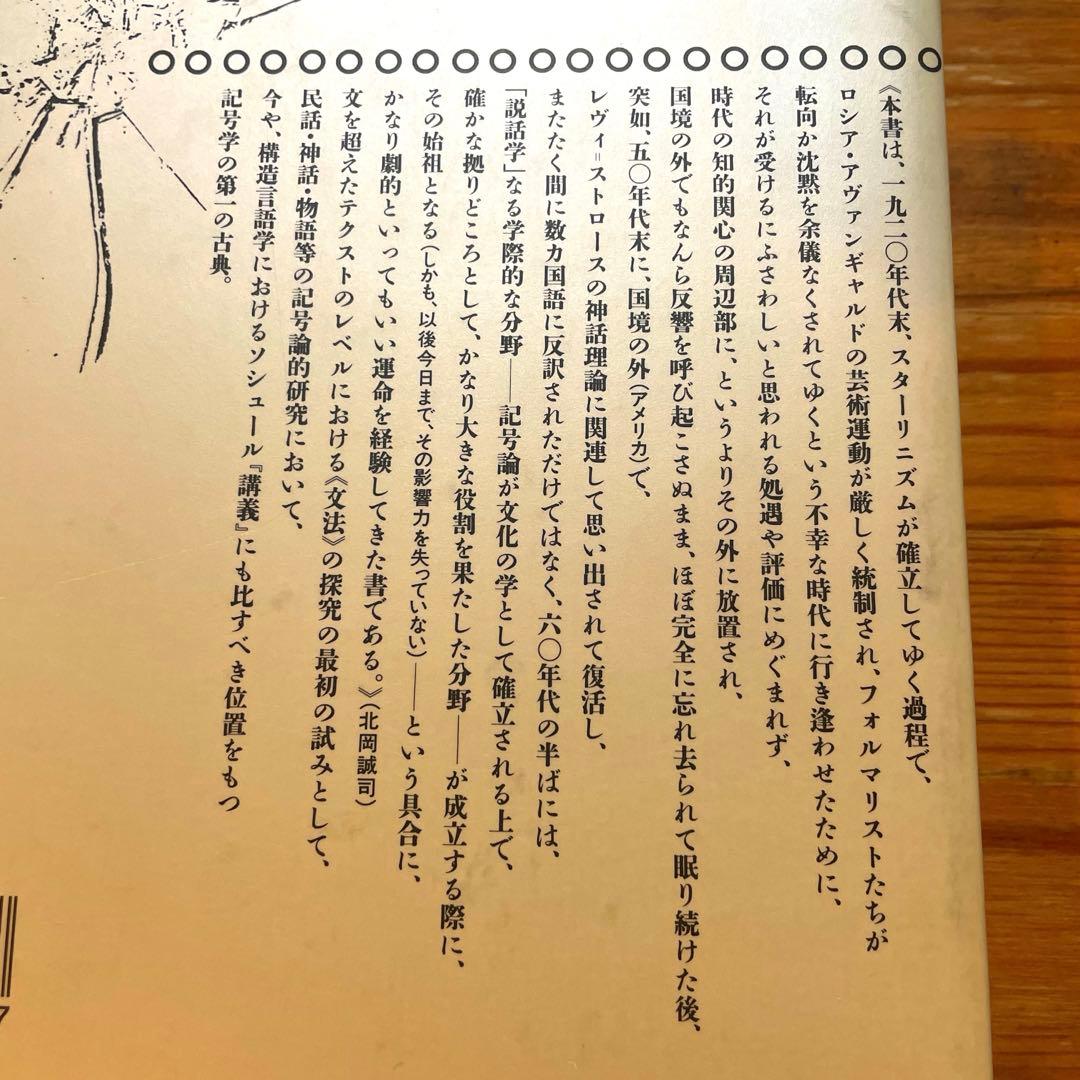 《本書は、一九二〇年代末、スターリニズムが確立してゆく過程で、
ロシア・アヴァンギャルドの芸術運動が厳しく統制され、フォルマリストたちが
転向か沈黙を余儀なくされてゆくという不幸な時代に行き逢わせたために、
それが受けるにふさわしいと思われる処遇や評価にめぐまれず、
時代の知的関心の周辺部に、というよりその外に放置され、
国境の外でもなんら反響を呼び起こさぬまま、ほぼ完全に忘れ去られて眠り続けた後、
突如、五〇年代末に、国境の外(アメリカ)で、
レヴィ=ストロースの神話理論に関連して思い出されて復活し、
またたく間に数カ国語に反訳されただけではなく、六〇年代の半ばには、
「説話学」なる学際的な分野——記号論が文化の学として確立される上で、
確かな拠りどころとして、かなり大きな役割を果たした分野——が成立する際に、
その始祖となる(しかも、以後今日まで、その影響力を失っていない)——という具合に、
かなり劇的といってもいい運命を経験してきた書である。》(北岡誠司)
文を超えたテクストのレベルにおける《文法》の探究の最初の試みとして、
民話・神話・物語等の記号論的研究において、
今や、構造言語学におけるソシュール『講義』にも比すべき位置をもつ
記号学の第一の古典。
7